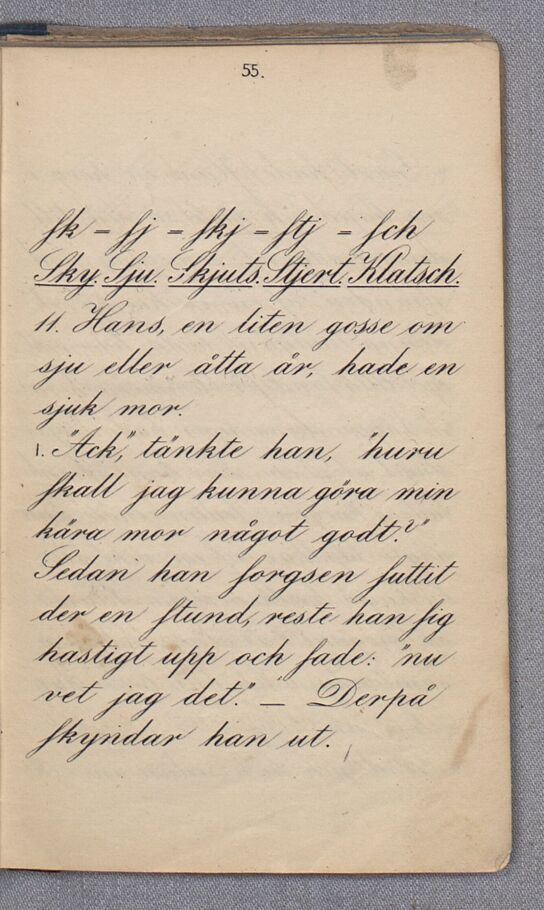 55.
sk = sj = skj = stj = sch
Sky. Sju. Skjuts. Stjert. Klatsch.
11. Hans, en liten gosse om
sju eller åtta år, hade en
sjuk mor.
1. "Ack", tänkte han, "huru
skall jag kunna göra min
kära mor något godt?"
Sedan han sorgsen suttit
der en stund, reste han sig
hastigt upp och sade: "nu
vet jag det." — Derpå
skyndar han ut.